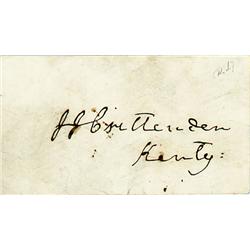 JJ Crittenden
Kenty: